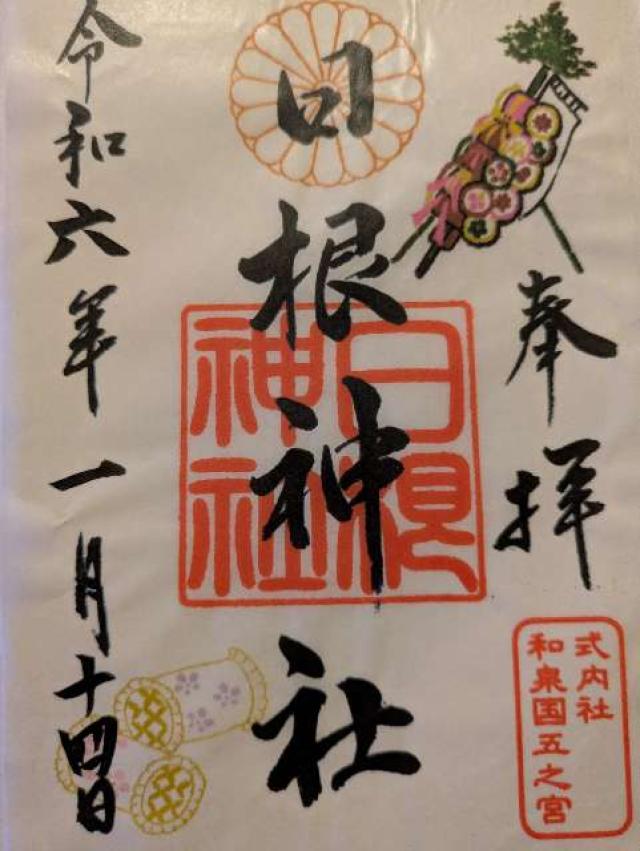 奉拝
日根神社
日根神社
令和六年一月十四日
式内社
和泉国五之宮